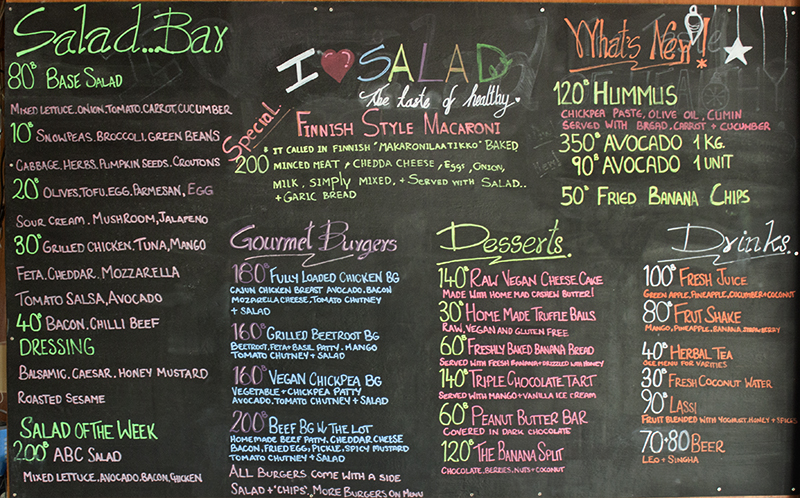 Salad...Bar
80฿ BASE SALAD
MIXED LETTUCE.ONION.TOMATO.CARROT.CUCUMBER
10฿ SNOWPEAS.BROCCOLI.GREEN BEANS
• CABBAGE.HERBS.PUMPKIN SEEDS.CROUTONS
20฿ OLIVES.TOFU.EGG.PARMESAN, EGG
SOUR CREAM. MUSHROOM,JALAPENO
30฿ GRILLED CHICKEN.TUNA,MANGO
FETA.CHEDDAR.MOZZARELLA
TOMATO SALSA,AVOCADO
40฿ BACON.CHILLI BEEF
DRESSING
BALSAMIC.CAESAR.HONEY MUSTARD
ROASTED SESAME
SALAD OF THE WEEK
200฿ ABC SALAD
MIXED LETTUCE.AVOCADO.BACON,CHICKEN
I ♥ SALAD
The taste of healthy
Special.
FINNISH STYLE MACARONI
* IT CALLED IN FINNISH "MAKARONILAATIKKO" BAKED
200 MINCED MEAT, CHEDDA CHEESE, EGGS, ONION,
MILK, SIMPLY MIXED, + SERVED WITH SALAD..
+ GARLIC BREAD
What's New!
120฿ HUMMUS
CHICKPEA PASTE, OLIVE OIL, CUMIN
SERVED WITH BREAD, CARROT + CUCUMBER
350฿ AVOCADO 1 KG.
90฿ AVOCADO 1 UNIT
50฿ FRIED BANANA CHIPS
Gourmet Burgers
180฿ FULLY LOADED CHICKEN BG
CAJUN CHICKEN BREAST AVOCADO.BACON
MOZARELLA CHEESE.TOMATO CHUTNEY
+ SALAD
160฿ GRILLED BEETROOT BG
BEETROOT.FETA+BASIL PATTY. MANGO
TOMATO CHUTNEY + SALAD
160฿ VEGAN CHICKPEA BG
VEGETABLE + CHICKPEA PATTY
AVOCADO.TOMATO CHUTNEY + SALAD
200฿ BEEF BG W THE LOT
HOMEMADE BEEF PATTY. CHEDDAR CHEESE
BACON,FRIED EGG,PICKLE,SPICY MUSTARD
TOMATO CHUTNEY + SALAD
ALL BURGERS COME WITH A SIDE
SALAD + "CHIPS", MORE BURGERS ON MENU
Desserts
140฿ RAW VEGAN CHEESE CAKE
MADE WITH HOME MAD CASHEW BUTTER!
30฿ HOME MADE TRUFFLE BALLS
RAW, VEGAN AND GLUTEN FREE
60฿ FRESHLY BAKED BANANA BREAD
SERVED WITH FRESH BANANA + DRIZZLED WITH HONEY
140฿ TRIPLE CHOCOLATE TART
SERVED WITH MANGO + VANILLA ICE CREAM
60฿ PEANUT BUTTER BAR
COVERED IN DARK CHOCOLATE
120฿ THE BANANA SPLIT
CHOCOLATE, BERRIES, NUTS + COCONUT
Drinks..
100฿ FRESH JUICE
GREEN APPLE, PINEAPPLE, CUCUMBER + COCONUT
80฿ FRUT SHAKE
MANGO, PINEAPPLE, BANANA, STRAWBERRY
40฿ HERBAL TEA
SEE MENU FOR VARITIES
30฿ FRESH COCONUT WATER
90฿ LASSI
FRUIT BLENDED WITH YOGHURT, HONEY + SPICES
70+80 BEER
LEO + SINGHA